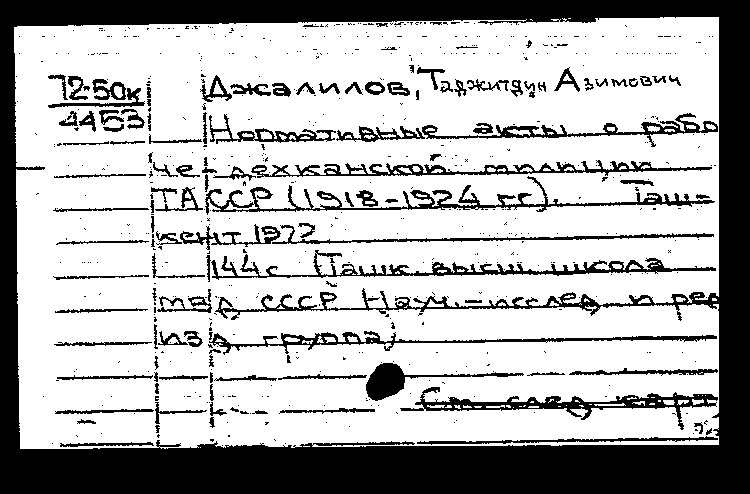 72-50к
4453
Джалилов, Таджитдин Азимович
Нормативные акты о рабо
че-дехканской милиции
ТАССР (1918-1924 гг). Таш-
кент, 1972
144 с (Ташк. высш. школа
МВД СССР Науч.-исслед и ред
изд. группа)
См. след. карт